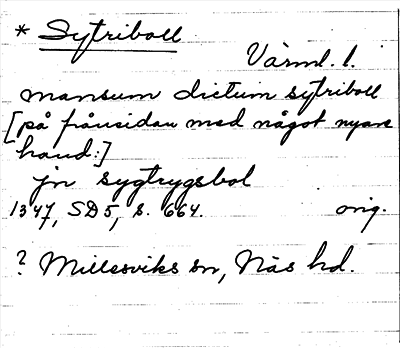 * Sytriboll
Värml. l.
mansum dictum sytriboll
[på frånsidan med något nyare
hand:]
jn sygtrygsbol
1347, SD 5, s. 664. orig.
? Millesviks sn, Näs hd.